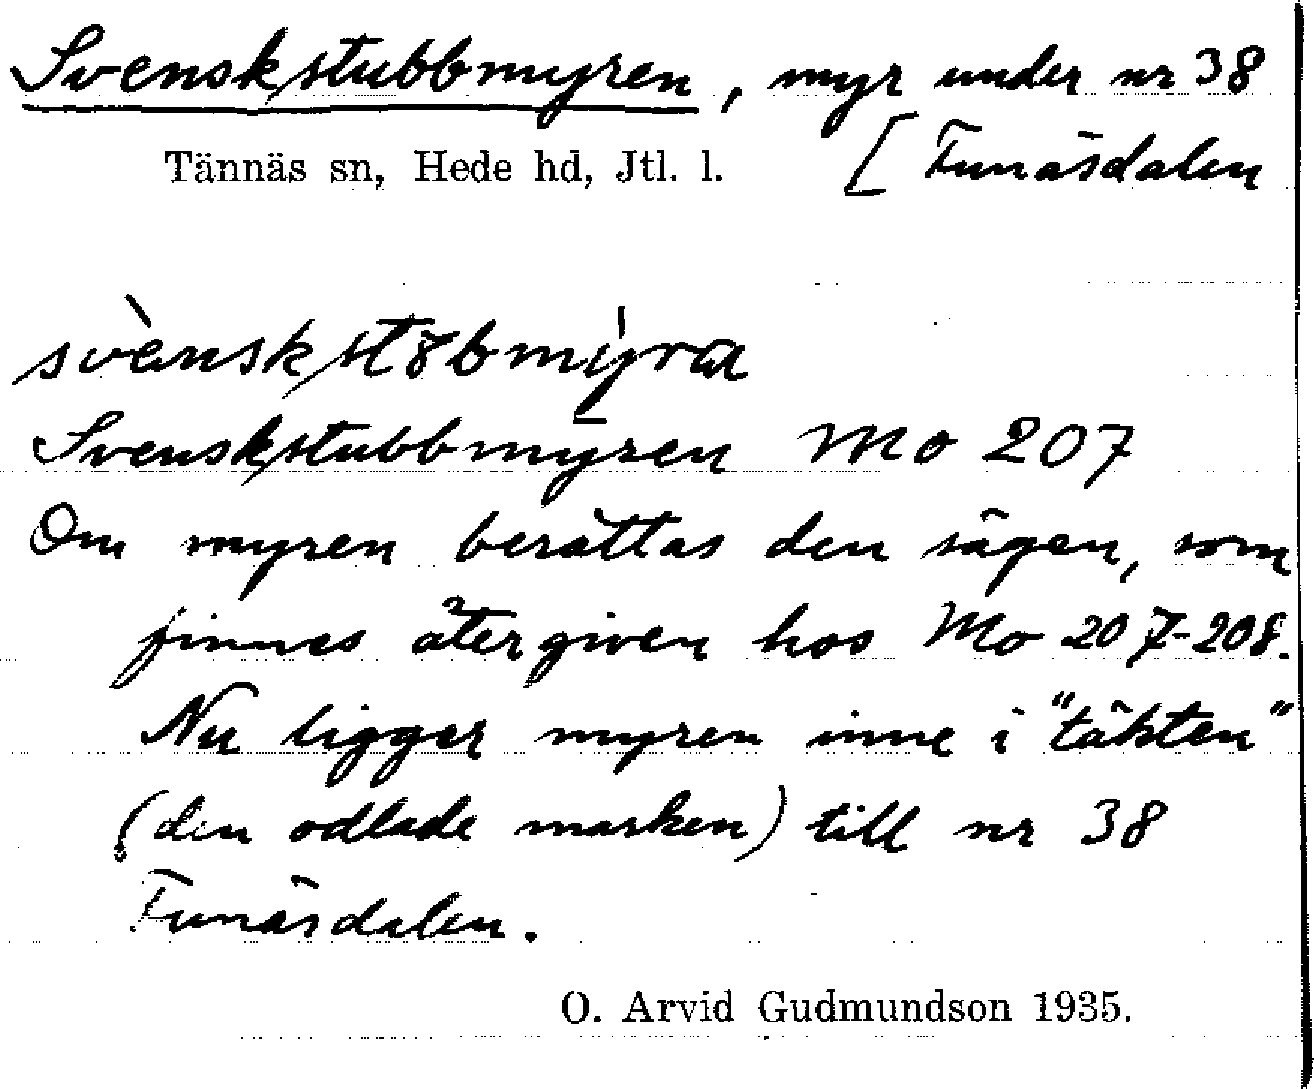 Svenskstubbmyren, myr under nr 38
Tännäs sn, Hede hd, Jtl. l. [Funäsdalen
svènskstȣbmy̱̍ra
Svenskstubbmyren Mo 207
Om myren berättas den sägen, som
finnes återgiven hos Mo 207-208.
Nu ligger myren inne i "täkten"
(den odlade marken) till nr 38
Funäsdalen.
O. Arvid Gudmundson 1935.